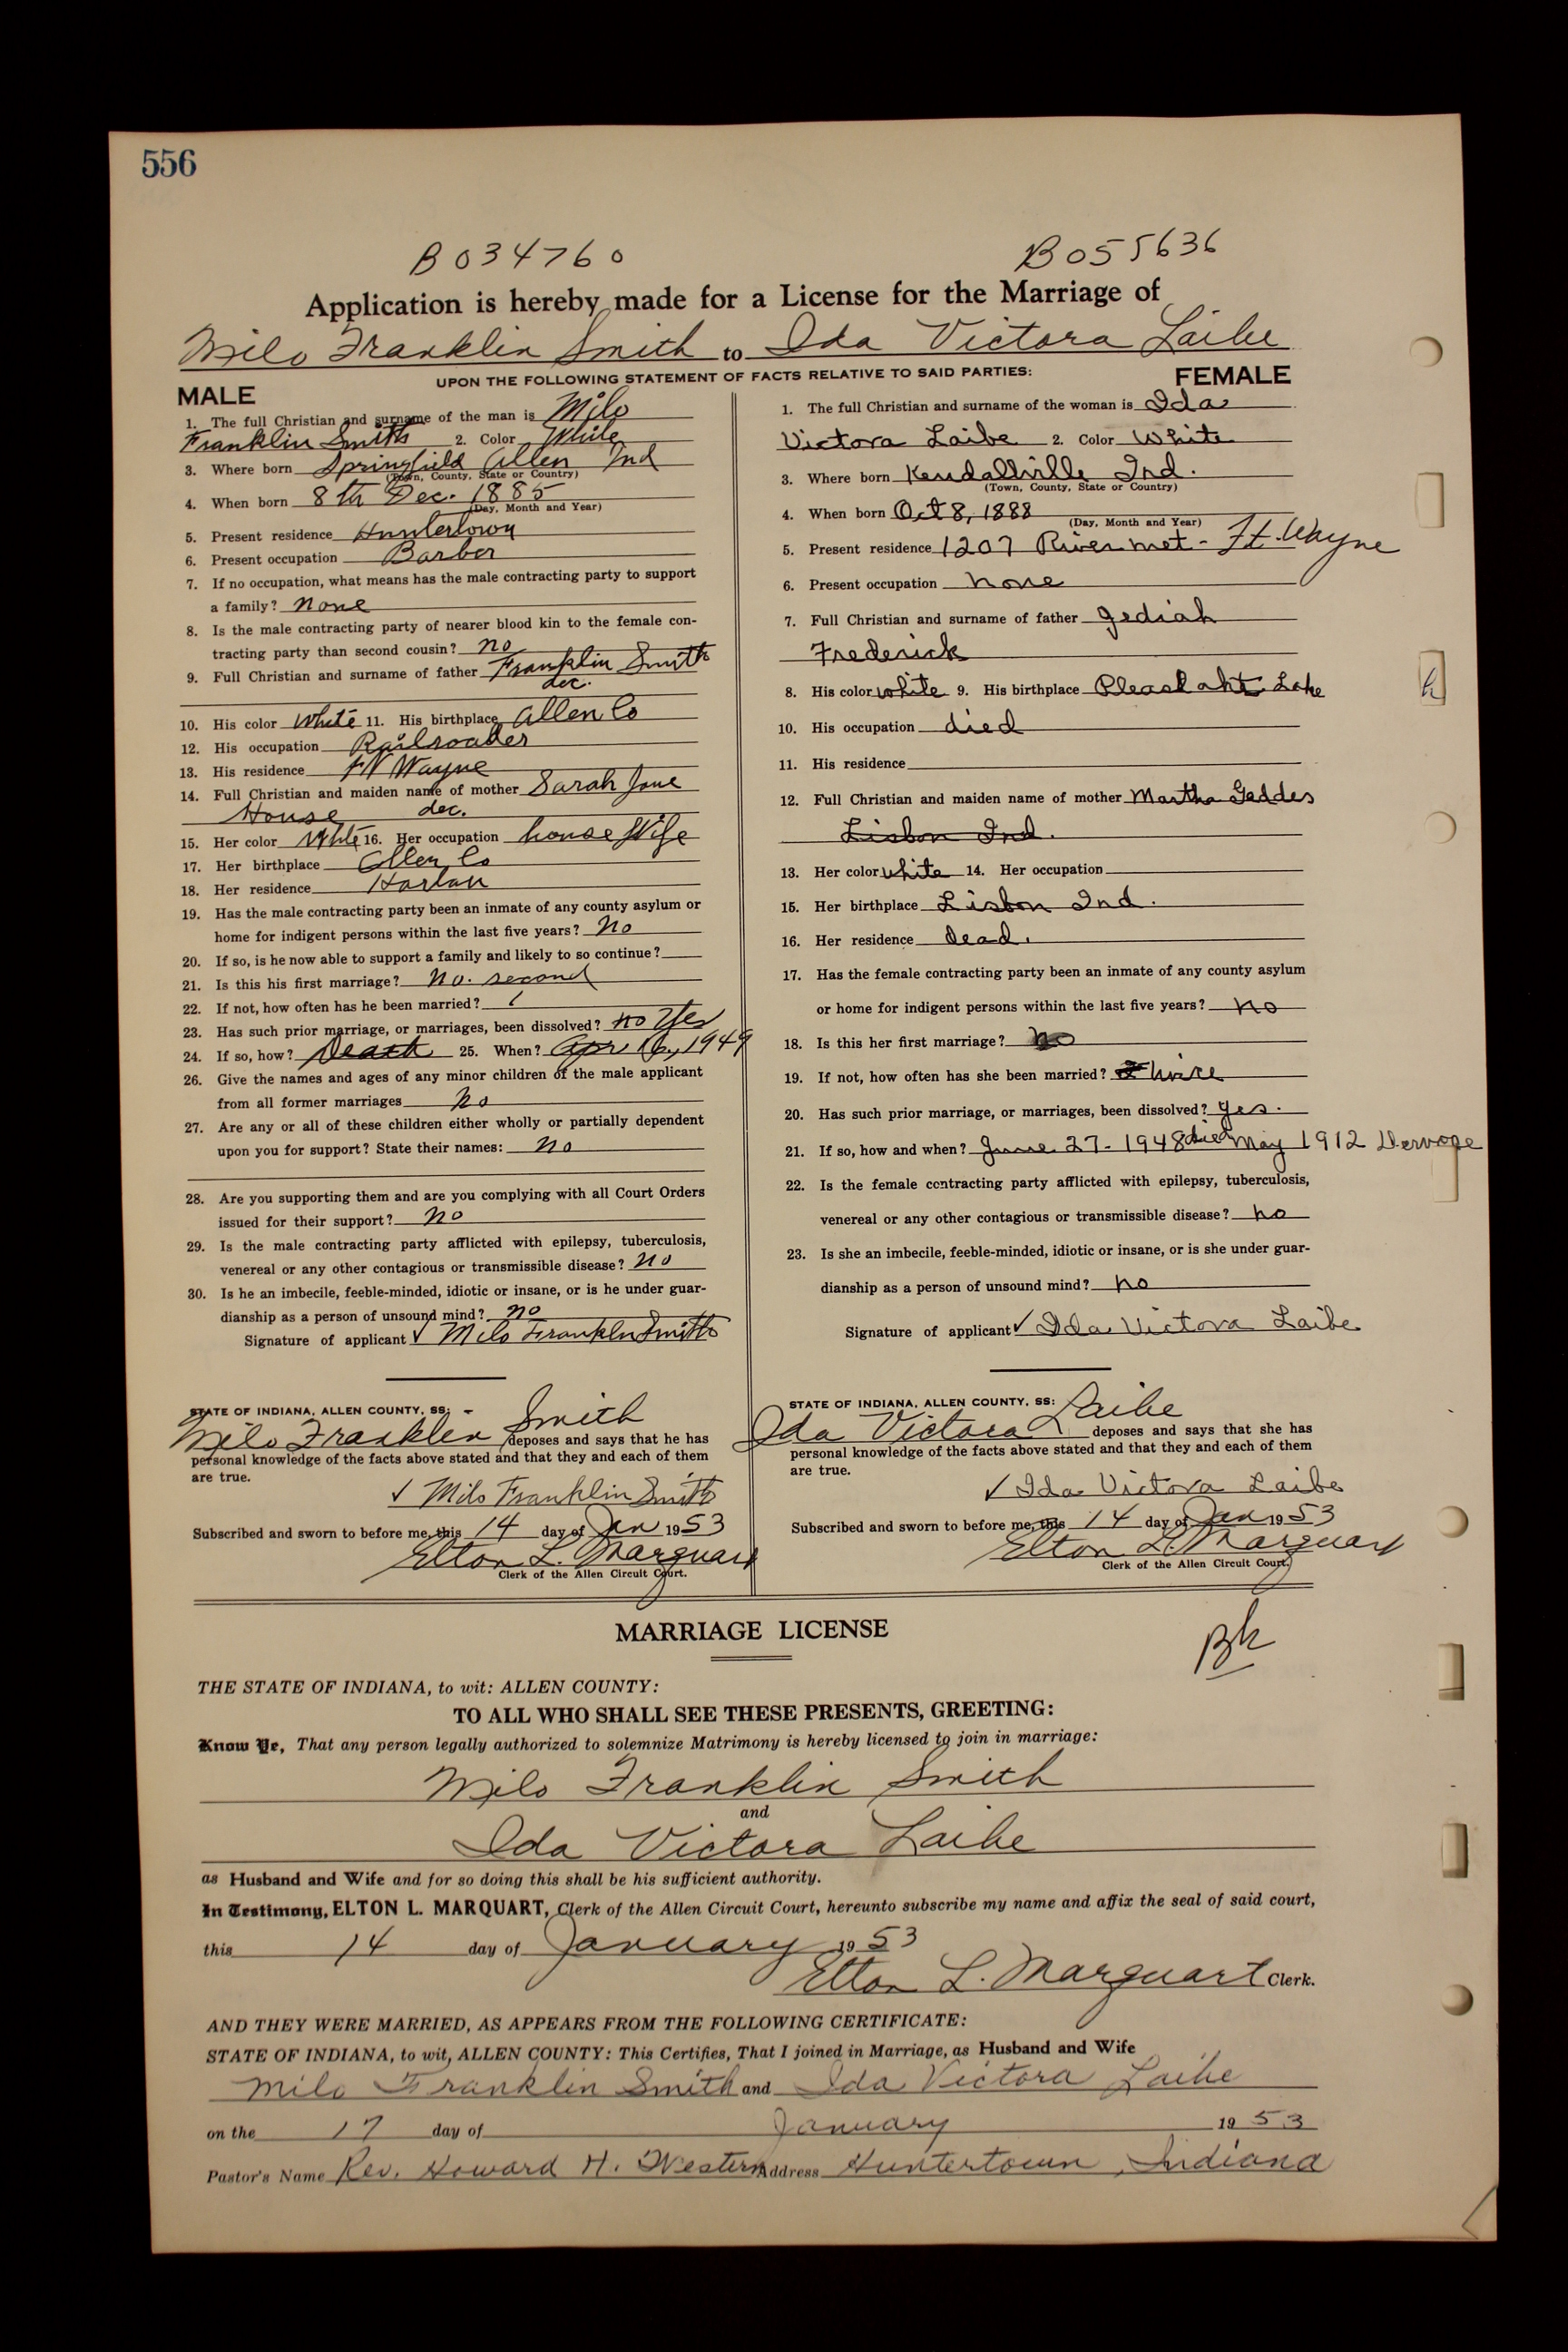 556
B034760 B055636
Application is hereby made for a License for the Marriage of
Milo Franklin Smith to Ida Victora Laibe
UPON THE FOLLOWING STATEMENT OF FACTS RELATIVE TO SAID PARTIES:
MALE
1. The full Christian and surname of the man is Milo
Franklin Smith 2. Color White
3. Where born Springfield Allen Ind
(Town, County, State or Country)
4. When born 8th Dec. 1885
(Day, Month and Year)
5. Present residence Huntertown
6. Present occupation Barber
7. If no occupation, what means has the male contracting party to support
a family? none
8. Is the male contracting party of nearer blood kin to the female con-
tracting party than second cousin? no
9. Full Christian and surname of father Franklin Smith
dec.
10. His color White 11. His birthplace Allen Co
12. His occupation Railroader
13. His residence Ft Wayne
14. Full Christian and maiden name of mother Sarah Jane
House dec.
15. Her color White 16. Her occupation house Wife
17. Her birthplace Allen Co
18. Her residence Harlan
19. Has the male contracting party been an inmate of any county asylum or
home for indigent persons within the last five years? No
20. If so, is he now able to support a family and likely to so continue?
21. Is this his first marriage? No. second
22. If not, how often has he been married? 1
23. Has such prior marriage, or marriages, been dissolved? no Yes
24. If so, how? Death 25. When? Apr 16, 1949
26. Give the names and ages of any minor children of the male applicant
from all former marriages No
27. Are any or all of these children either wholly or partially dependent
upon you for support? State their names: no
28. Are you supporting them and are you complying with all Court Orders
issued for their support? no
29. Is the male contracting party afflicted with epilepsy, tuberculosis,
venereal or any other contagious or transmissible disease? no
30. Is he an imbecile, feeble-minded, idiotic or insane, or is he under guar-
dianship as a person of unsound mind? no
Signature of applicant ✓ Milo Franklin Smith
STATE OF INDIANA, ALLEN COUNTY, SS: Smith
Milo Franklin deposes and says that he has
personal knowledge of the facts above stated and that they and each of them
are true.
✓ Milo Franklin Smith
Subscribed and sworn to before me, this 14 day of Jan 1953
Elton L. Marquart
Clerk of the Allen Circuit Court.
FEMALE
1. The full Christian and surname of the woman is Ida
Victora Laibe 2. Color White
3. Where born Kendallville Ind.
(Town, County, State or Country)
4. When born Oct 8, 1888
(Day, Month and Year)
5. Present residence 1207 Rivermet - Ft. Wayne
6. Present occupation none
7. Full Christian and surname of father Jediah
Frederick
8. His color white 9. His birthplace Lake
10. His occupation died
11. His residence
12. Full Christian and maiden name of mother Martha Geddes
Lisbon Ind.
13. Her color white 14. Her occupation
15. Her birthplace Lisbon Ind.
16. Her residence dead.
17. Has the female contracting party been an inmate of any county asylum
or home for indigent persons within the last five years? no
18. Is this her first marriage? no
19. If not, how often has she been married?
20. Has such prior marriage, or marriages, been dissolved? yes.
21. If so, how and when? June 27 - 1948 died May 1912
22. Is the female contracting party afflicted with epilepsy, tuberculosis,
venereal or any other contagious or transmissible disease? no
23. Is she an imbecile, feeble-minded, idiotic or insane, or is she under guar-
dianship as a person of unsound mind? no
Signature of applicant ✓ Ida Victora Laibe
STATE OF INDIANA, ALLEN COUNTY, SS: Laibe
Ida Victora deposes and says that she has
personal knowledge of the facts above stated and that they and each of them
are true.
✓ Ida Victora Laibe
Subscribed and sworn to before me, this 14 day of Jan 1953
Elton L. Marquart
Clerk of the Allen Circuit Court.
MARRIAGE LICENSE
THE STATE OF INDIANA, to wit: ALLEN COUNTY:
TO ALL WHO SHALL SEE THESE PRESENTS, GREETING:
Know Ye, That any person legally authorized to solemnize Matrimony is hereby licensed to join in marriage:
Milo Franklin Smith
and
Ida Victora Laibe
as Husband and Wife and for so doing this shall be his sufficient authority.
In Testimony, ELTON L. MARQUART, Clerk of the Allen Circuit Court, hereunto subscribe my name and affix the seal of said court,
this 14 day of January 1953
Elton L. Marquart Clerk.
AND THEY WERE MARRIED, AS APPEARS FROM THE FOLLOWING CERTIFICATE:
STATE OF INDIANA, to wit, ALLEN COUNTY: This Certifies, That I joined in Marriage, as Husband and Wife
Milo Franklin Smith and Ida Victora Laibe
on the 17 day of January 1953
Pastor's Name Rev. Howard H. Western Address Huntertown, Indiana